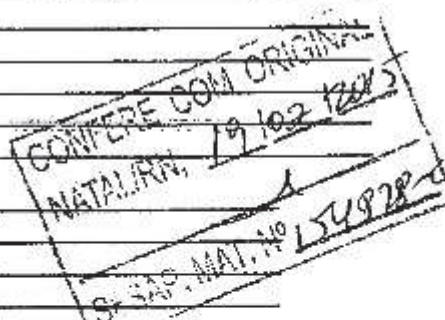 CONFERE COM ORIGINAL
NATAL/RN, 19/02/2013
MAT. Nº 154928-